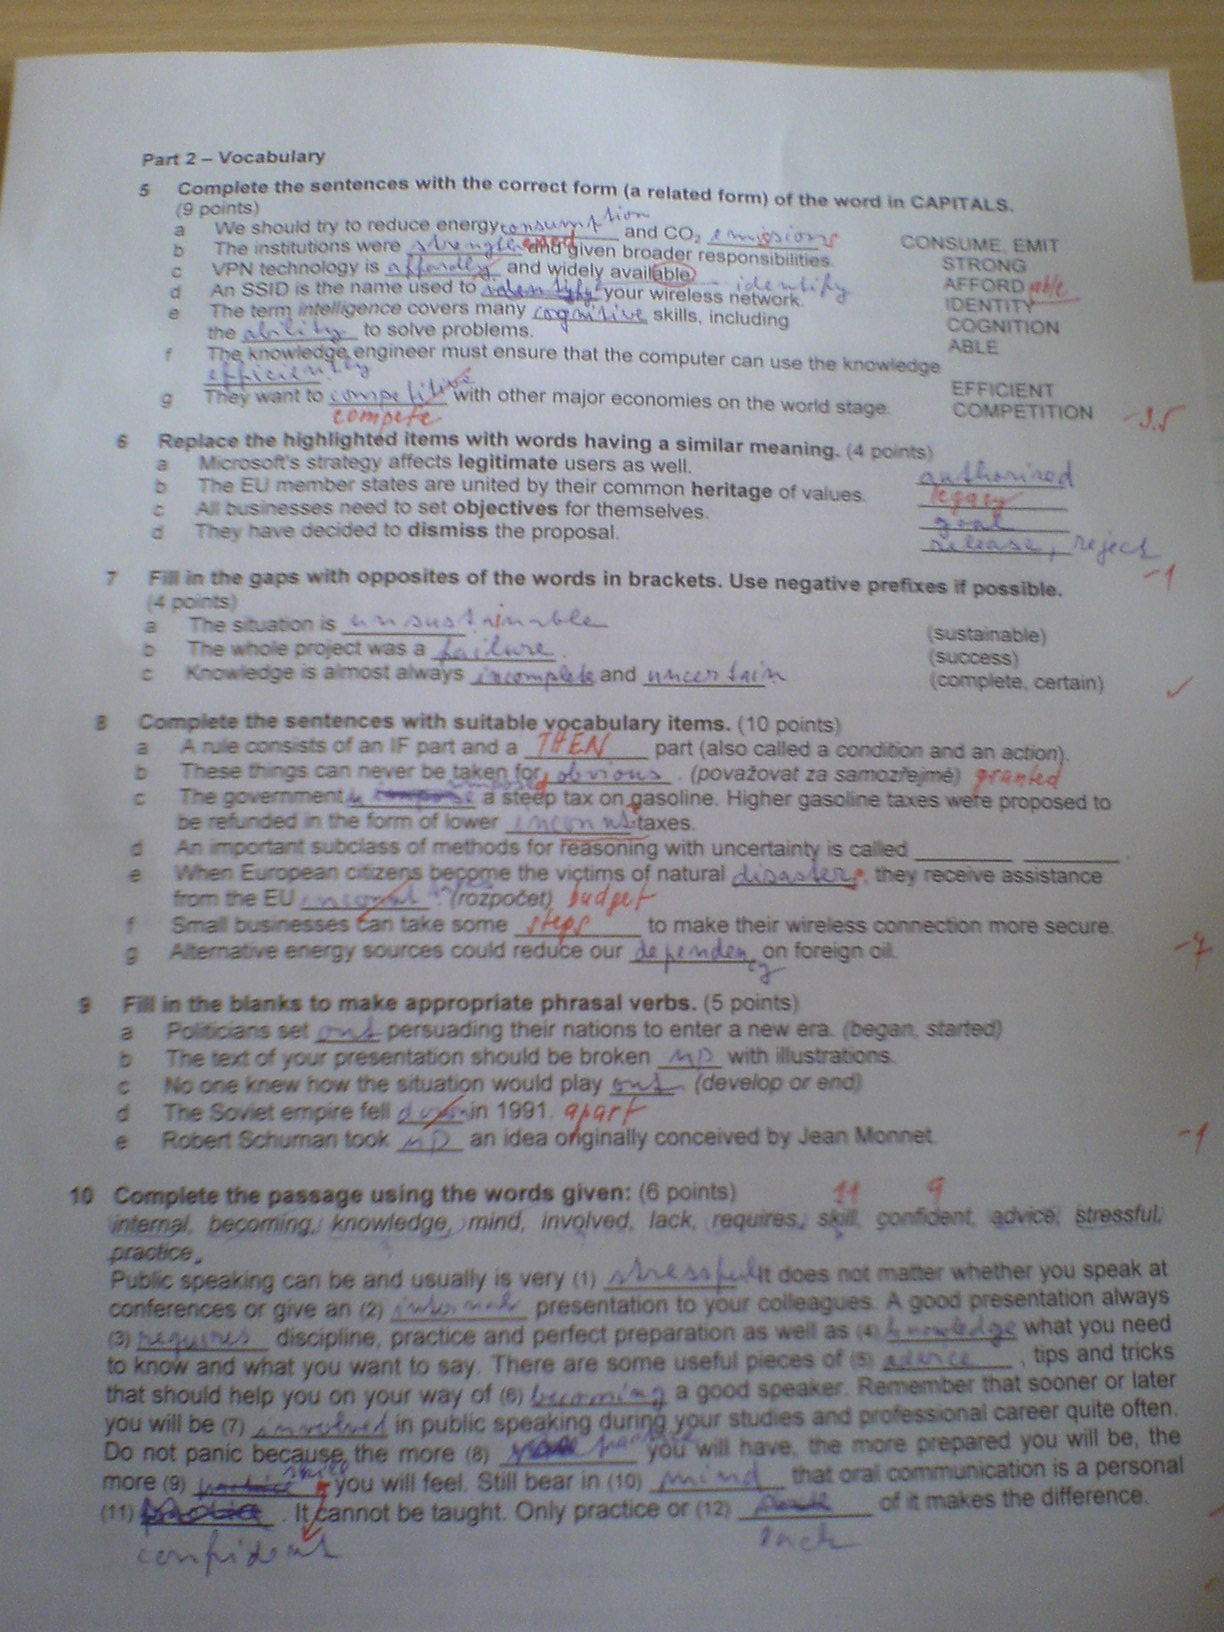 Part 2 – Vocabulary
5 Complete the sentences with the correct form (a related form) of the word in CAPITALS.
(9 points)
a We should try to reduce energy consumption and CO₂ emissions CONSUME, EMIT
b The institutions were strengthened and given broader responsibilities. STRONG
c VPN technology is affordly and widely available. AFFORD able
d An SSID is the name used to identify your wireless network. identify IDENTITY
e The term intelligence covers many cognitive skills, including COGNITION
the ability to solve problems. ABLE
f The knowledge engineer must ensure that the computer can use the knowledge
efficiently. EFFICIENT
g They want to competitive with other major economies on the world stage. COMPETITION -3.5
compete
6 Replace the highlighted items with words having a similar meaning. (4 points)
a Microsoft's strategy affects legitimate users as well. authorized
b The EU member states are united by their common heritage of values. legacy
c All businesses need to set objectives for themselves. goal
d They have decided to dismiss the proposal. release, reject
-1
7 Fill in the gaps with opposites of the words in brackets. Use negative prefixes if possible.
(4 points)
a The situation is unsustainable (sustainable)
b The whole project was a failure. (success)
c Knowledge is almost always incomplete and uncertain (complete, certain)
8 Complete the sentences with suitable vocabulary items. (10 points)
a A rule consists of an IF part and a THEN part (also called a condition and an action).
b These things can never be taken for obvious. (považovat za samozřejmé) granted
c The government imposed a steep tax on gasoline. Higher gasoline taxes were proposed to
be refunded in the form of lower taxes.
d An important subclass of methods for reasoning with uncertainty is called ______ ______.
e When European citizens become the victims of natural disasters, they receive assistance
from the EU (rozpočet) budget
f Small businesses can take some steps to make their wireless connection more secure.
g Alternative energy sources could reduce our dependency on foreign oil. -4
9 Fill in the blanks to make appropriate phrasal verbs. (5 points)
a Politicians set out persuading their nations to enter a new era. (began, started)
b The text of your presentation should be broken up with illustrations.
c No one knew how the situation would play out (develop or end)
d The Soviet empire fell down in 1991. apart
e Robert Schuman took up an idea originally conceived by Jean Monnet. -1
10 Complete the passage using the words given: (6 points) 11 9
internal, becoming, knowledge, mind, involved, lack, requires, skill, confident, advice, stressful,
practice,
Public speaking can be and usually is very (1) stressful It does not matter whether you speak at
conferences or give an (2) internal presentation to your colleagues. A good presentation always
(3) requires discipline, practice and perfect preparation as well as (4) knowledge what you need
to know and what you want to say. There are some useful pieces of (5) advice, tips and tricks
that should help you on your way of (6) becoming a good speaker. Remember that sooner or later
you will be (7) involved in public speaking during your studies and professional career quite often.
Do not panic because the more (8) practice you will have, the more prepared you will be, the
more (9) skill you will feel. Still bear in (10) mind that oral communication is a personal
(11) . It cannot be taught. Only practice or (12) of it makes the difference.
confident lack